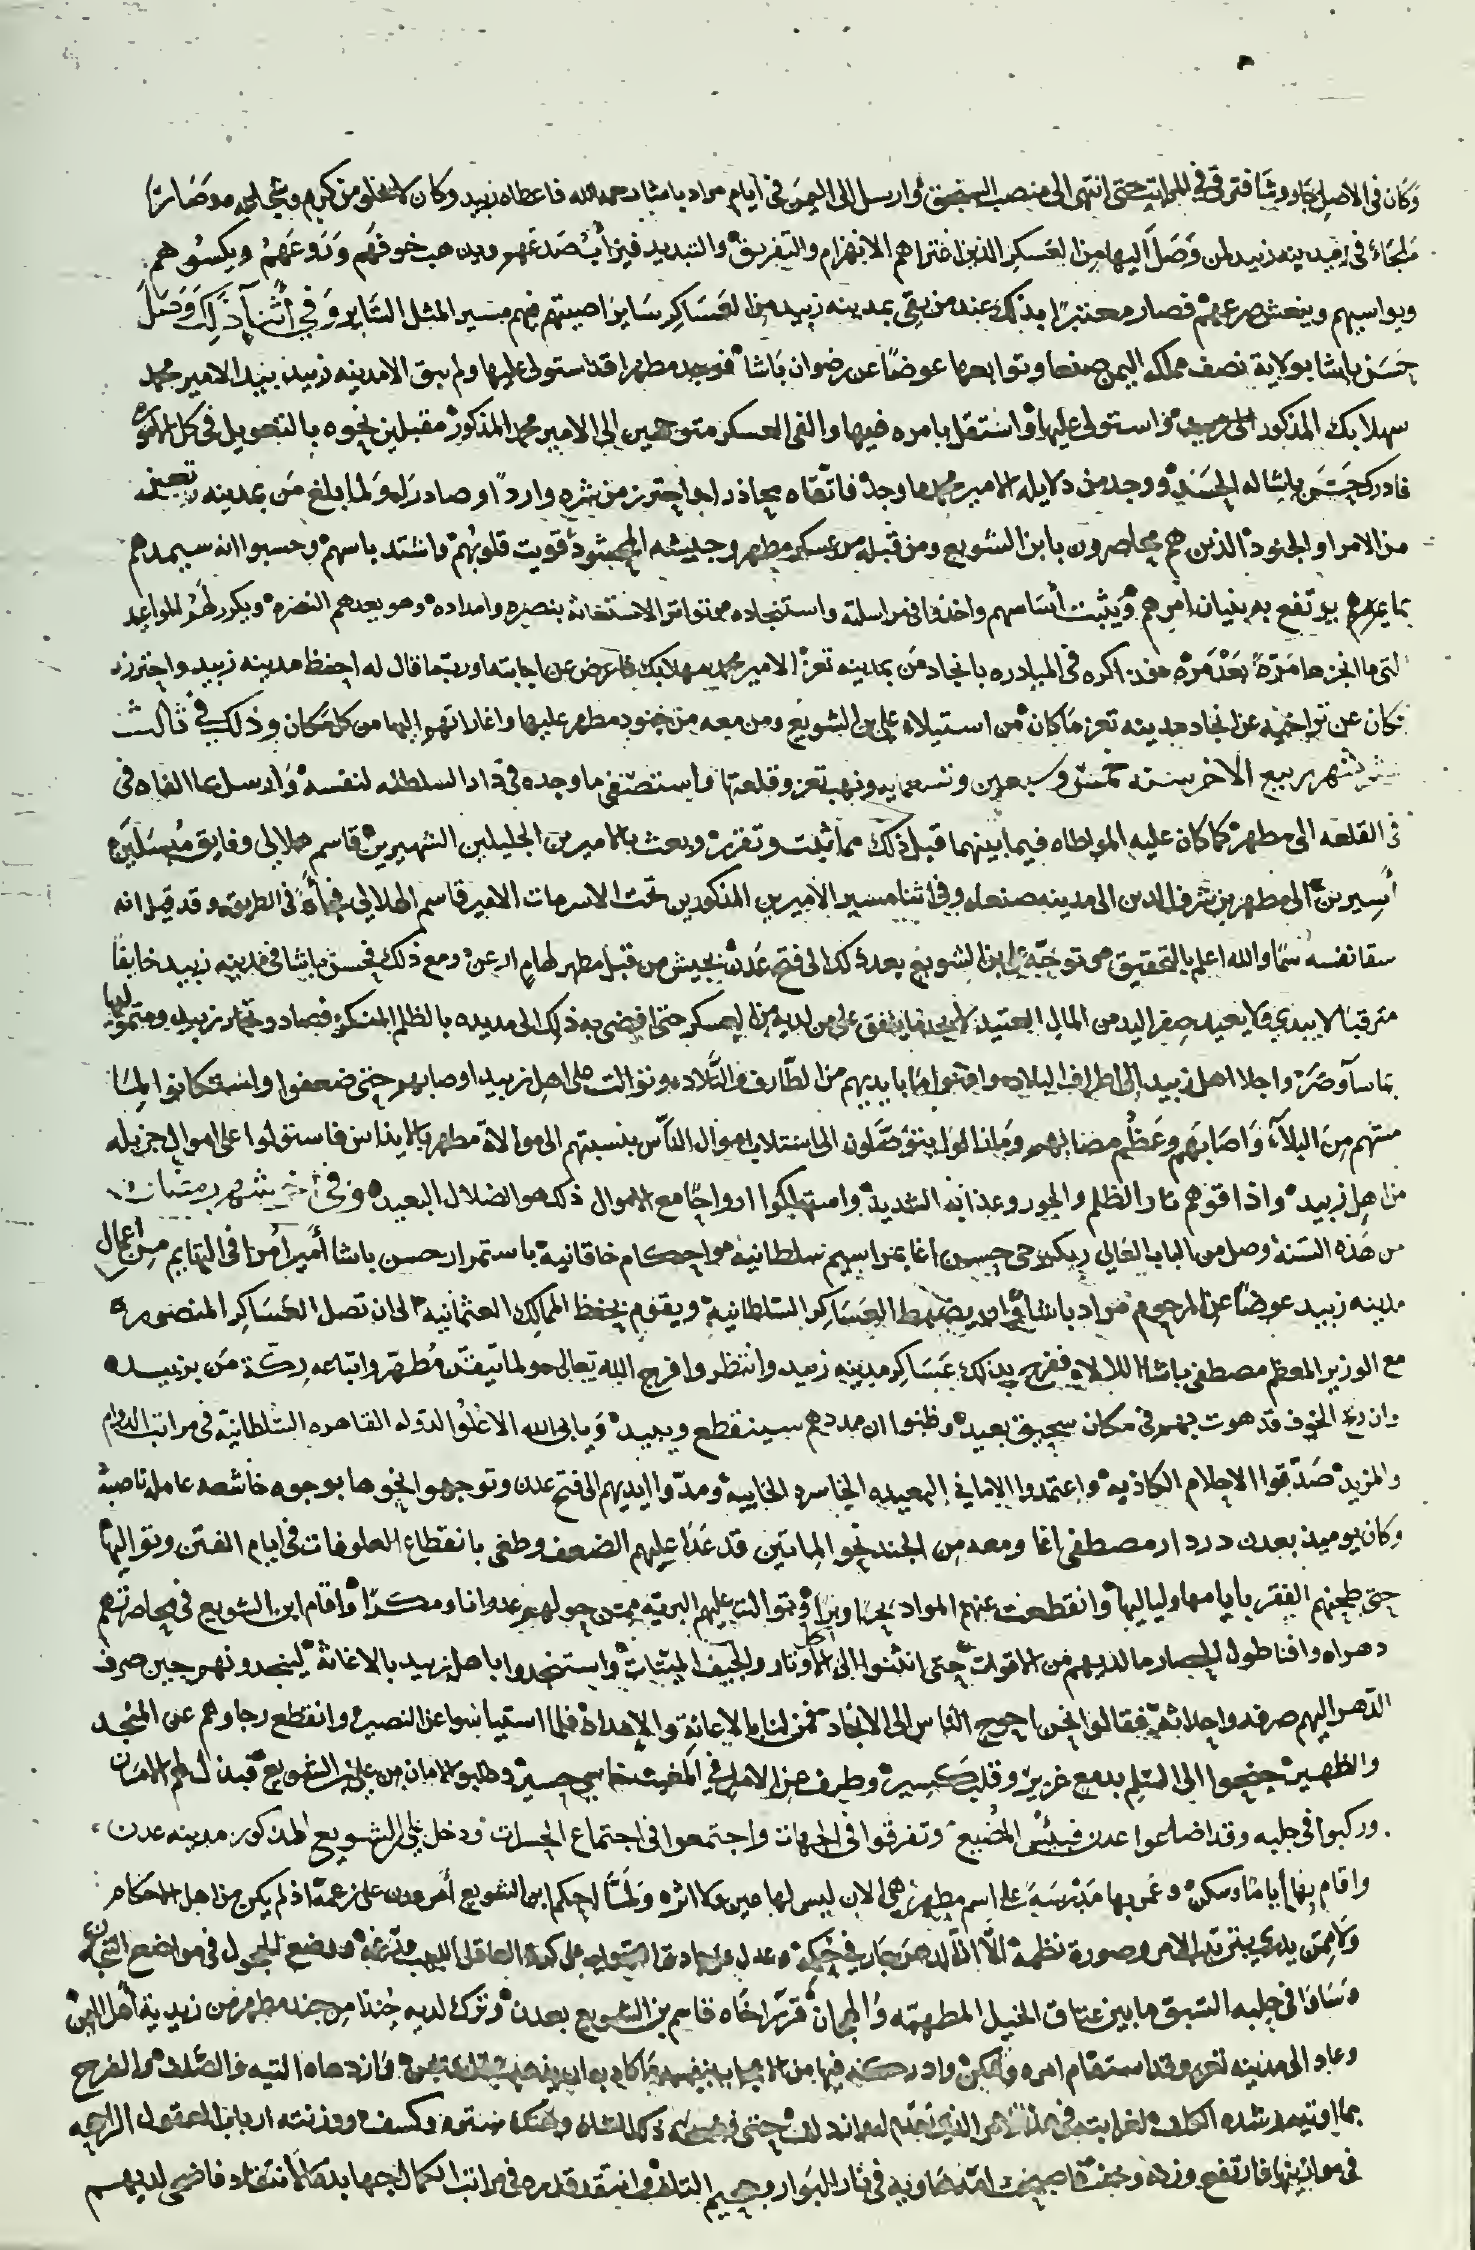 وكان في الاصل جاووشا فترقى في المراتب حتى انتهى الى منصب السنجق وارسل الى اليمن في ايام مراد باشا رحمه الله فاعطاه زبيد وكان لا يخلو من كرم وشجاعه وصار
ملجاء في مدينه زبيد لمن وصل اليها من العسكر الذين اعتراهم الانهزام والتفريق والتبديد فيرأب صدعهم ويذهب خوفهم وروعهم ويكسوهم
ويواسيهم وينعش صرعهم فصار معتبرا بذلك عند من بقي بمدينه زبيد من العساكر ساير اصيتهم فيهم مسير المثل الساير وفي أثنآ ذلك وصل
حسن باشا بولاية نصف مملكه اليمن صنعا وتوابعها عوضا عن رضوان باشا فوجد مطهرا قد استولى عليها ولم يبق الا مدينه زبيد بيد الامير محمد
سهلا بك المذكور واستولى عليها واستقل بامره فيها والفى العسكر متوجهين الى الامير محمد المذكور مقبلين نحوه بالتعويل في كل الامور
فادرك حسن باشا له الحسد ووجد من دلايله الامير محمد ما وجد فاتقاه محاذرا واحترز من شره واردا وصادرا ولما بلغ من بمدينه تعز
من الامرا والجنود الذين هم محاصرون بابن الشويع ومن قبله من عسكر مطهر وجيشه المحشود قويت قلوبهم واشتد باسهم وحسبوا انه سيمدهم
بما يرتفع به بنيان امرهم ويثبت أساسهم واخذوا في مراسلته واستنجاده وتواتر الاستغاثه بنصره وامداده وهو يعدهم النصره ويكرر لهم المواعيد
التي ما انجزها مرة بعد مره وذاكره في المبادره بانجاد من بمدينه تعز الامير محمد سهلا بك فاعرض عن اجابته وربما قال له احفظ مدينه زبيد واحترز
فكان عن تراخيه عن انجاد مدينه تعز ما كان من استيلاء علي بن الشويع ومن معه من جنود مطهر عليها واغاراتهم اليها من كل مكان وذلك في ثالث
شهر ربيع الاخر سنة خمس وسبعين وتسعمايه ونهب تعز وقلعتها واستصفى ما وجده في دار السلطنه لنفسه وارسل بما الفاه في
في القلعه الى مطهر كما كان عليه المواطاه فيما بينهما قبل ذلك مما ثبت وتقرر وبعث بالاميرين الجليلين الشهيرين قاسم هلالي وفايق مسلسلين
أسيرين الى مطهر بن شرف الدين الى مدينه صنعا وفي اثنا مسير الاميرين المذكورين تحت الاسر مات الامير قاسم الهلالي فجأة في الطريق وقد قيل انه
سقا نفسه سما والله اعلم بالتحقيق وتوجه علي ابن الشويع بعد ذلك الى فتح عدن بجيش من قبل مطهر لهام ارعن ومع ذلك فحسن باشا في مدينه زبيد خايفا
مترقبا لا يبدي ولا يعيد صفر اليد من المال العتيد لا يجد ما ينفق على من لديه من العسكر حتى افضى به ذلك الى مد يده بالظلم المنكر فصادر تجار زبيد ومتموليها
بما سآ وضر واجلا اهل زبيد الى اطراف البلاد وافنوا ما بايديهم من الطارف والتلاد وتوالت على اهل زبيد اوصابهم حتى ضعفوا واستكانوا لما
مستهم من البلآء واصابهم وعظم مصابهم وما زالوا يتوصلون الى استلاب اموال الناس بنسبتهم الى موالاة مطهر فاستولوا على اموال جزيله
من اهل زبيد واذاقوهم نار الظلم والجور وعذابه الشديد واستهلكوا ارواحا مع الاموال ذلك هو الضلال البعيد وفي آخر شهر رمضان
من هذه السنه وصل من الباب العالي حسين اغا بمراسيم سلطانيه واحكام خاقانيه باستمرار حسن باشا أميرا في التهايم من اعمال
مدينه زبيد عوضا عن المرحوم مراد باشا وان يضبط العساكر السلطانيه ويقوم بحفظ الممالك العثمانيه الى ان تصل العساكر المنصوره
مع الوزير المعظم مصطفى باشا اللالا ففرح بذلك عساكر مدينه زبيد وانتظروا فرج الله تعالى ولما تيقن مطهر واتباعه رقة من بزبيد
وان ريح الخوف قد هوت بهم في مكان سحيق بعيد وظنوا ان مددهم سينقطع ويبيد ويابى الله الا علو الدوله القاهره السلطانيه في مراتب الدوام
والمزيد صدقوا الاحلام الكاذبه واعتمدوا الاماني البعيده الخاسره الخايبه ومدوا ايديهم الى فتح عدن وتوجهوا نحوها بوجوه خاشعه عامله ناصبه
وكان يوميذ بعدن دردار مصطفى اغا ومعه من الجند نحو المائتين قد عدا عليهم الضعف وطغى بانقطاع العلوفات في ايام الفتن وتواليها
حتى طحنهم الفقر بايامها ولياليها وانقطعت عنهم المواد بحرا وبرا وتوالت عليهم البريه ممن حولهم عدوانا ومكرا واقام ابن الشويع في محاصرتهم
دهرا وافنا طول الحصار ما لديهم من الاقوات حتى انثنوا الى اكل الاوتار والجيف الميتات واستنجدوا باهل زبيد بالاغاثه لينجدونهم حين صرف
الدهر اليهم صرفه واحداثه فقالوا نحن احوج الناس الى الانجاد فمن لنا بالاعانة والامداد فلما استيانسوا عن النصير وانقطع رجاوهم عن المنجد
والظهير جنحوا الى السلم بدمع غزير وقلب كسير وطرف عن الامل في المغيث خاسي حسير وطلبوا الامان من علي بن الشويع فبذل لهم الامان
وركبوا في جلبه وقد اضاعوا عدن فبئس المضيع وتفرقوا في الجهات واجتمعوا في اجتماع الحسرات ودخل علي بن الشويع المذكور مدينه عدن
واقام بها أياما وسكن وعمر بها مدرسة على اسم مطهر هي الان ليس لها عين ولا اثر ولما احكم ابن الشويع أمر عدن على زعمه اذ لم يكن من اهل الاحكام
ولا ممن يدري بترتيب الامر وصورة نظمه الا ان الدهر جار في حكمه وعدل عن جادة
وساوا في حلبه السبق ما بين عتاق الخيل المطهمه والهجان قرر اخاه قاسم بن الشويع بعدن وترك لديه جندا من جند مطهر من زيدية أهل اليمن
وعاد الى مدينه تعز وقد استقام امره وتمكن وادركته فيها من الاعجاب بنفسه وازدهاه التيه والصلف والفرح
بما اوتيه
في موازينها فارتفع وزنه وخف فاصبحت امه هاويه في نار البوار وجحيم التلف وانتقد قدره في مراتب الكمال جهابذة الانتقاد فاضحى لديهم